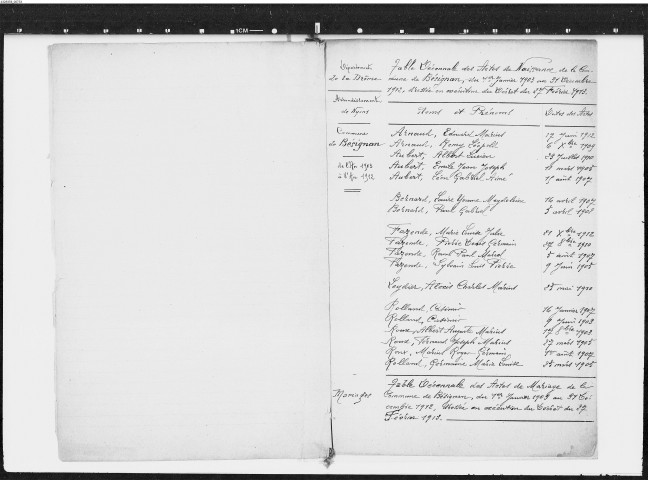 Département
de la Drôme
Arrondissement
de Nyons
Commune
de Bésignan
de l'An 1903
à l'An 1912
Table Décennale des Actes de Naissance de la Com-
mune de Bésignan, du 1er Janvier 1903 au 31 Décembre
1912, dressée en exécution du Décret du 27 Février 1913.
Noms et Prénoms Dates des Actes
Arnaud, Edouard Marius 17 Juin 1912
Arnaud, Remy Léopold 6 Xbre 1909
Aubert, Albert Lucien 28 Juillet 1910
Aubert, Emile Jean Joseph 11 mars 1905
Aubert, Léon Gabriel Aimé 15 août 1907
Bernard, Laure Yvonne Magdeleine 16 avril 1907
Bernard, Paul Gabriel 3 avril 1908
Fazende, Marie Louise Julie 21 Xbre 1912
Fazende, Pierre Louis Germain 27 8bre 1910
Fazende, Raoul Paul Marcel 5 août 1907
Fazende, Sylvain Louis Pierre 9 Juin 1905
Leydier, Alexis Charles Marius 25 mai 1910
Rolland, Casimir 16 Janvier 1907
Rolland, Casimir 9 1903
Roux, Albert Auguste Marius 8bre 1903
Roux, Fernand Joseph Marius 27 mars 1905
Roux, Marius Roger Germain 1er août 1907
Rolland, Germaine Marie Louise 25 mars 1905
Mariages
Table Décennale des Actes de Mariage de la
Commune de Bésignan, du 1er Janvier 1903 au 31 Dé-
cembre 1912, dressée en exécution du Décret du 27
Février 1913.